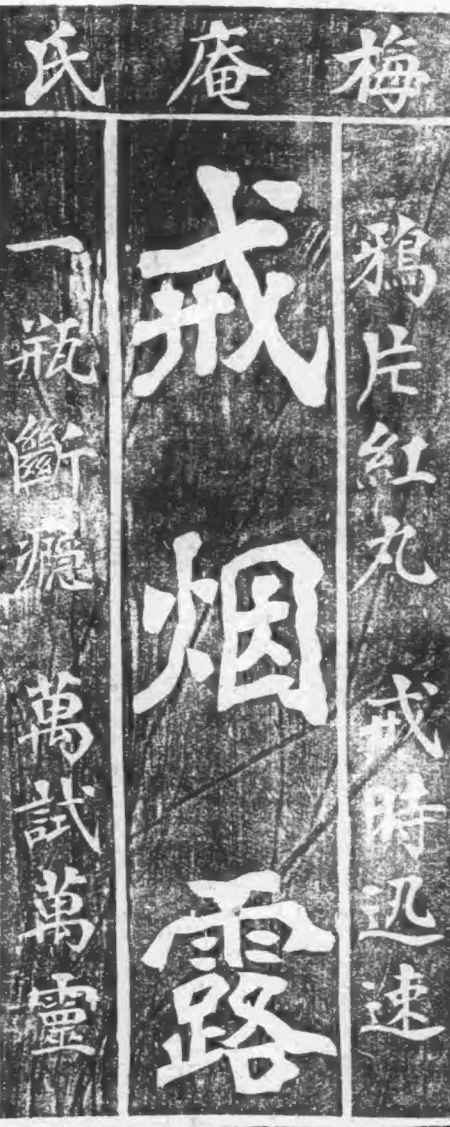 梅庵氏
鴉片紅丸 戒時迅速
戒烟露
一瓶斷癮 萬試萬靈